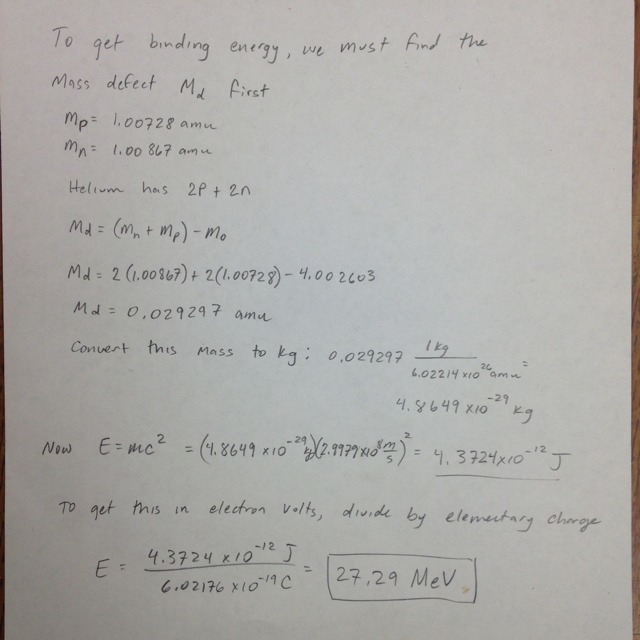 To get binding energy, we must find the
Mass defect Md first
Mp = 1.00728 amu
Mn = 1.00867 amu
Helium has 2P + 2n
Md = (Mn + Mp) - Mo
Md = 2(1.00867) + 2(1.00728) - 4.002603
Md = 0.029297 amu
Convert this mass to kg: 0.029297 1 kg / 6.02214 x 10^26 amu =
4.8649 x 10^-29 kg
Now E = mc^2 = (4.8649 x 10^-29 kg)(2.9979 x 10^8 m/s)^2 = 4.3724 x 10^-12 J
To get this in electron volts, divide by elementary charge
E = 4.3724 x 10^-12 J / 6.02176 x 10^-19 C = 27.29 MeV.